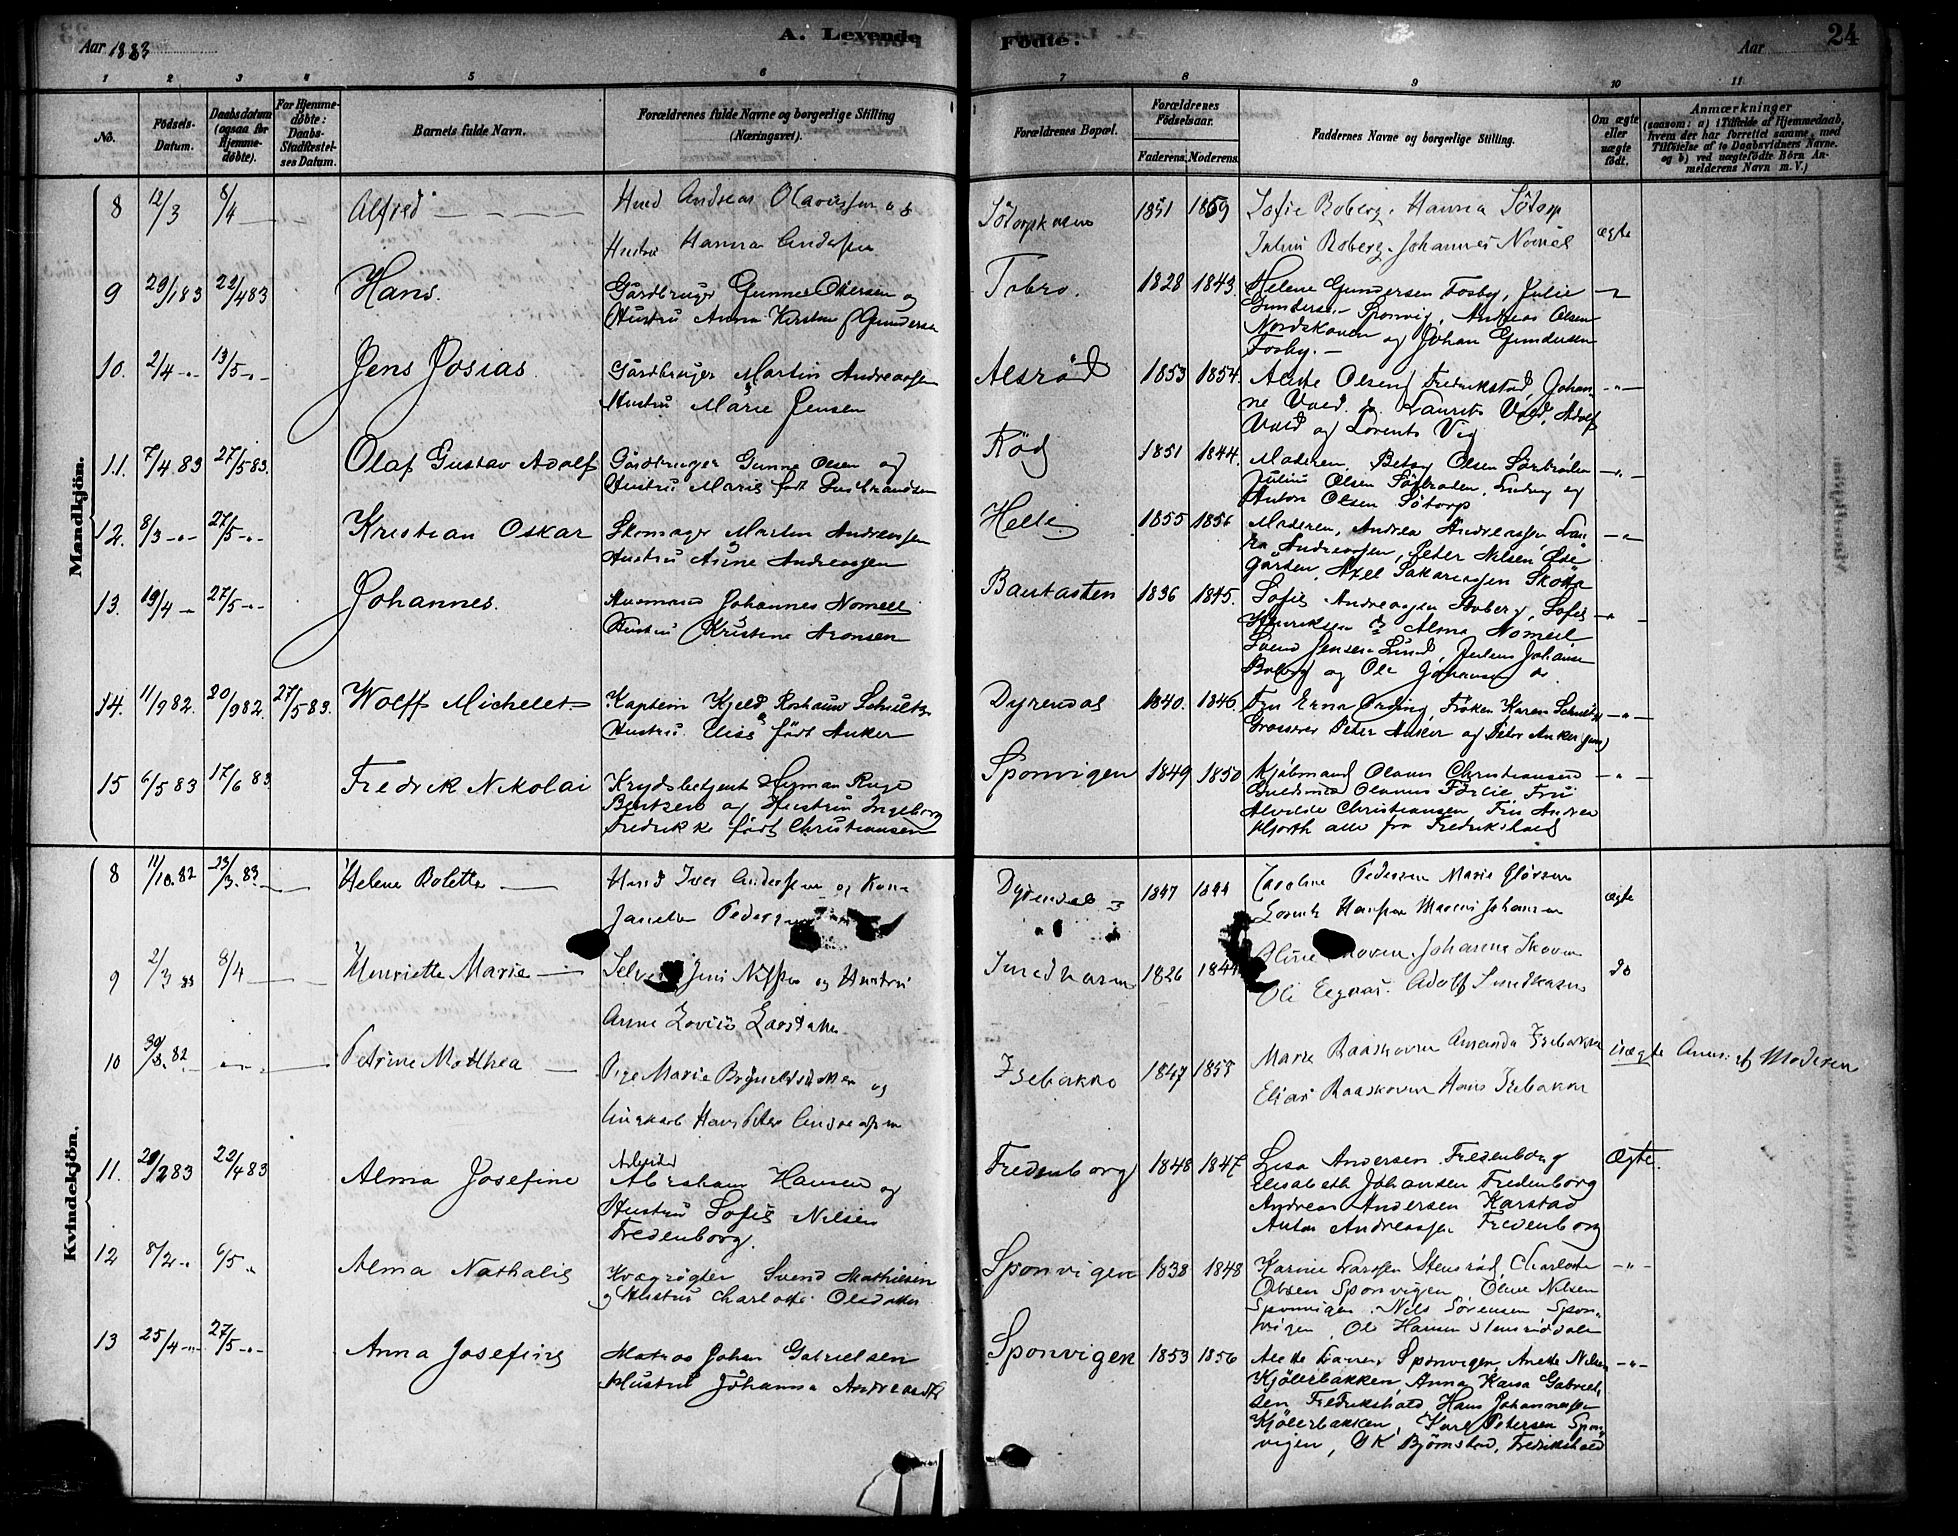 Aar 1883
A. Levende
Fødte.
Aar
24
1 2 3 4 5 6 7 8 9 10 11
No.
Fødsels-
Datum.
Daabsdatum
(ogsaa for
Hjemme-
døbte).
For Hjemme-
døbte:
Daabs-
Stadfæstel-
ses Datum.
Barnets fulde Navn.
Forældrenes fulde Navne og borgerlige Stilling
(Næringsvei).
Forældrenes Bopæl.
Forældrenes
Fødselsaar.
Faderens. Moderens.
Faddernes Navne og borgerlige Stilling.
Om ægte
eller
uægte
født.
Anmærkninger
(saasom: a) i Tilfælde af Hjemmedaab,
hvem der har forrettet samme, med
Tilføielse af to Daabsvidners Navne.
og b) ved uægtefødte Børn An-
melderens Navn m. V.)
Mandkjön.
8 12/3 8/4 Alfred Andreas Olaussen
Hustru Hanna
1851 1859 Sofie Boberg, Hanna Sötorp
Julius Boberg, Johannes ægte
9 29/1 83 22/4 83 Hans. Gårdbruger Gunner Olsersen og
Hustru Anna Kirstine Gundersen
Tobro. 1828 1843. Helene Gundersen Fosby, Julie
Gundersen Sponvig, Andreas Olsen
Nordskoven og Johan Gundersen
Fosby. —
10. 2/4 -"- 13/5 -"- Jens Josias. Gårdbruger Martin Andreassen
Hustru Marie Jensen
Alsröd 1853 1854. Olsen Fredrikstad, Johan-
ne Vold. Laurits Vold, Adolf
Vold og Lorents Vig
11. 7/4 83 27/5 83. Olaf Gustav Adolf Gårdbruger Gunner Olsen og
Hustru Marie født
Röd 1851 1844. Moderen, Betsy Olsen
Julius Olsen Ludvig og
Anton Olsen Sötorp
12. 8/3 -"- 27/5 -"- Kristian Oskar Skomager Martin Andreassen
Hustru Anne Andreassen
Helle 1855 1856 Moderen, Andrea Andreassen
Andreassen, Peter Nilsen Øde-
gården, Axel Sakariassen
13. 19/4 - 27/5 -"- Johannes. Husmand Johannes Nomell
Hustru Kristine Aronsen
Bautasten 1836 1845. Sofie Andreassen
Henriksen Alma Nomell
Svend Jensen Lund, Julius Johansen
Boberg og Ole Johansen
14. 11/9 82. 20/9 82. 27/5 83. Wolff Michelet Kaptein Kjeld Schultz
Hustru Elise født Anker
Dyrendal 1840. 1846. Fru Erna Ording, Frøken Karen Schultz
Grosserer Peter Anker og Peter Anker (jun)
15 6/5 83 17/6 83 Fredrik Nikolai Krydsbetjent Herman Ruge
Berntzen og Hustru Ingeborg
Fredrikke født Christiansen
Sponvigen 1849 1850 Kjøbmand Olaus Christiansen
Olavus Fru
Alvilde Christiansen Fru Andrea
Hjorth alle fra Fredrikshald
Kvindekjön.
8 11/10.82 23/3.83. Helene Bolette Iver Andersen og Kone
Janette Pedersen
Dyrendal 1847 1844 Caroline Pedersen Marie
Lorents Hansen Marius Johansen ægte
9 2/3 83 8/4 Henriette Marie Jens og Hustru
Anne
1826 1844 Johanne Skoven
Ole Adolf do
10 30/8.82 Petrine Matthea Pige Marie og
Ungkarl Hans Peter Andreassen
Isebakke 1847 1855 Marie Raaskoven Amanda Isebakke
Elias Raaskoven Hans Isebakke uægte Anm. af Moderen
11. 20/2 83 22/4 83 Alma Josefine Arbeider
Abraham Hansen og
Hustru Sofie Nilsen
Fredenborg.
Fredenborg 1848 1847 Lisa Andersen Fredenborg
Elisabeth Johansen Fredenborg
Andreas Andersen Karstad
Anton Andreassen Fredenborg Ægte.
12 8/2 -"- 6/5 " Alma Nathalie Kvægrögter Svend Mathiesen
og Hustru Charlotte Olsdatter
Sponvigen 1838 1848 Karine Larssen Stensröd, Charlotte
Olsen Sponvigen, Oline Nilsen
Sponvigen. Nils Sörensen Spon-
vigen, Ole Hansen Stensröddalen
13 25/4 -"- 27/5 -"- Anna Josefine Matros Johan Gabrielsen
Hustru Johanna Andreasdtr
Sponvigen 1853 1856 Alette Sponvigen, Anette Nilsen
Kjölerbakken Anna Kaisa Gabriel-
sen Fredrikshald Hans Johannessen
Kjölerbakken, Karl Petersen Spon-
vigen, O K Björnstad, Fredrikshald